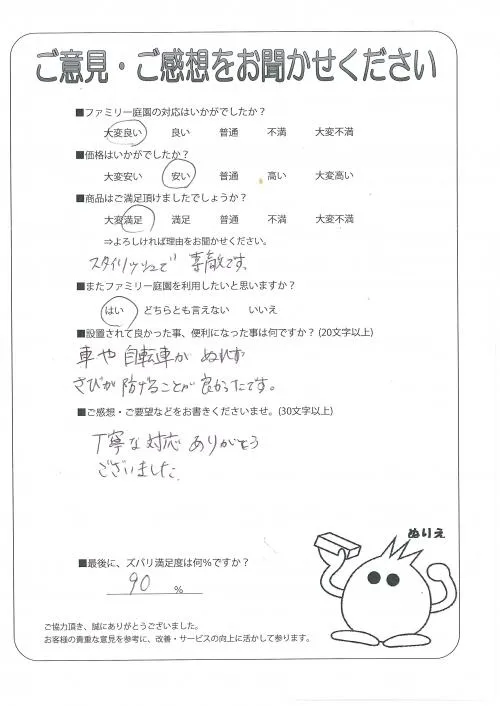 ご意見・ご感想をお聞かせください
■ファミリー庭園の対応はいかがでしたか？
大変良い 良い 普通 不満 大変不満
■価格はいかがでしたか？
大変安い 安い 普通 高い 大変高い
■商品はご満足頂けましたでしょうか？
大変満足 満足 普通 不満 大変不満
⇒よろしければ理由をお聞かせください。
スタイリッシュで 素敵です。
■またファミリー庭園を利用したいと思いますか？
はい どちらとも言えない いいえ
■設置されて良かった事、便利になった事は何ですか？(20文字以上)
車や 自転車が ぬれず
さびが 防げることが 良かったです。
■ご感想・ご要望などをお書きくださいませ。(30文字以上)
丁寧な対応 ありがとう
ございました
ぬりえ
■最後に、ズバリ満足度は何％ですか？
90 %
ご協力頂き、誠にありがとうございました。
お客様の貴重な意見を参考に、改善・サービスの向上に活かして参ります。